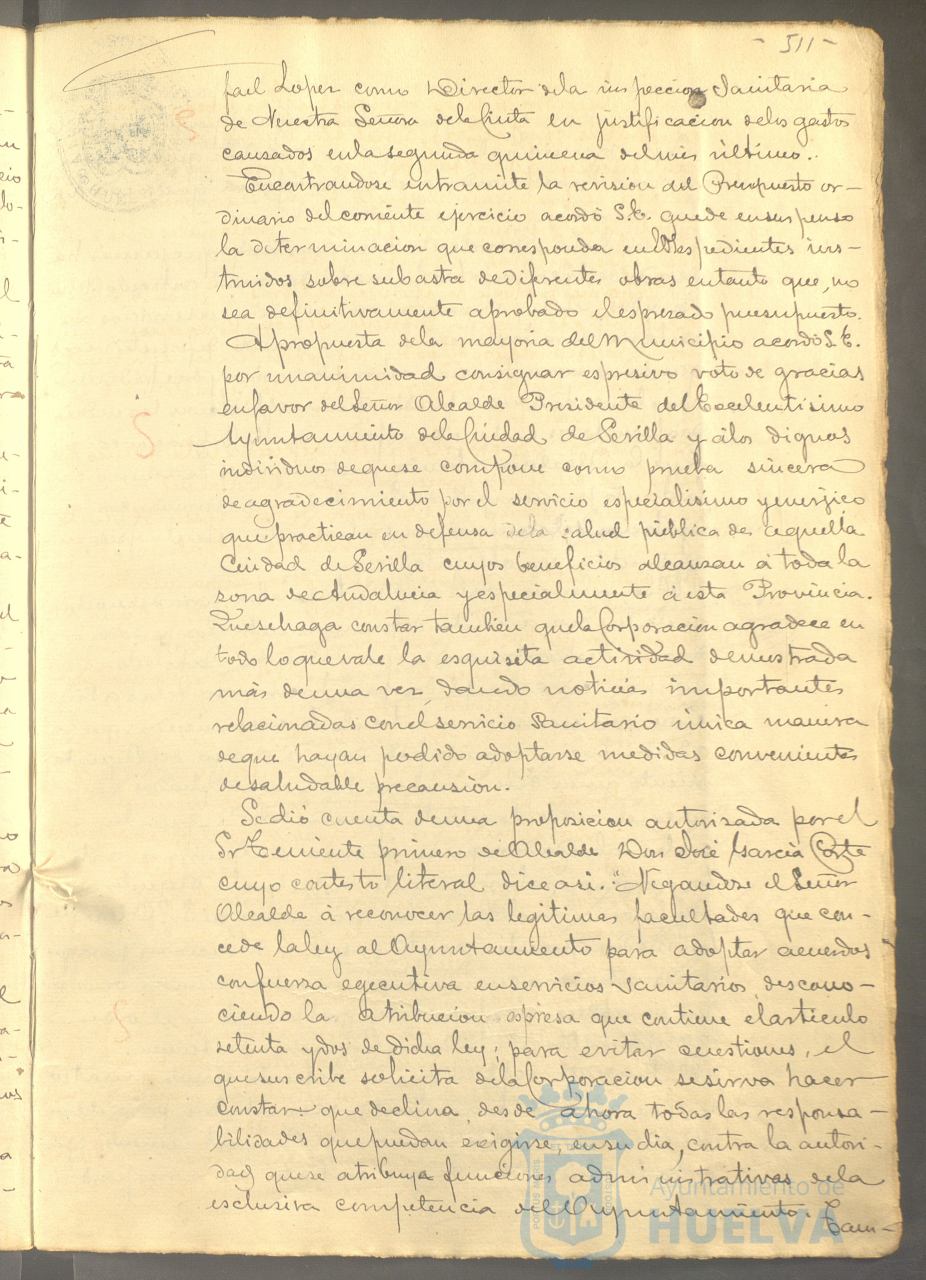 - 511 -
fael Lopez como Director dela inspeccion Sanitaria
de Nuestra Señora dela Cinta en justificacion delos gastos
causados enla segunda quincena del mes último.
Encontrandose entramite la revision del Presupuesto or-
dinario del corriente ejercicio acordó S.E. quede ensuspenso
la determinacion que corresponda en los espedientes ins-
truidos sobre subasta dediferentes obras entanto que, no
sea definitivamente aprobado elespresado presupuesto.
A propuesta dela mayoria del Municipio acordó S.E.
por unanimidad consignar espresivo voto de gracias
enfavor del Señor Alcalde Presidente del Excelentisimo
Ayuntamiento dela Ciudad de Sevilla y álos dignos
individuos dequese compone como prueba sincera
de agradecimiento por el servicio especialisimo y enerjico
que practican en defensa dela salud pública de aquella
Ciudad de Sevilla cuyos beneficios alcanzan á toda la
zona de Andalucia y especialmente á esta Provincia.
Quesehaga constar tambien quela Corporacion agradece en
todo lo que vale la esquisita actividad demostrada
más deuna vez, dando noticias importantes
relacionadas conel servicio Sanitario única manera
deque hayan podido adoptarse medidas convenientes
desaludable precausión.
Sedió cuenta deuna proposicion autorizada por el
Sr Teniente primero de Alcalde Don José Garcia Corte
cuyo contesto literal dice asi. "Negandose el Señor
Alcalde á reconocer las legitimas facultades que con-
cede la ley al Ayuntamiento para adoptar acuerdos
confuerza egecutiva enservicios sanitarios, descono-
ciendo la atribucion espresa que contiene elarticulo
setenta ydos de dicha ley; para evitar cuestiones, el
quesuscribe solicita dela Corporacion sesirva hacer
constar que declina, desde ahora todas las responsa-
bilidades que puedan exigirse, ensu dia, contra la autori-
dad que se atribuya funciones administrativas dela
esclusiva competencia del Ayuntamiento. Tam-
Ayuntamiento de
HUELVA